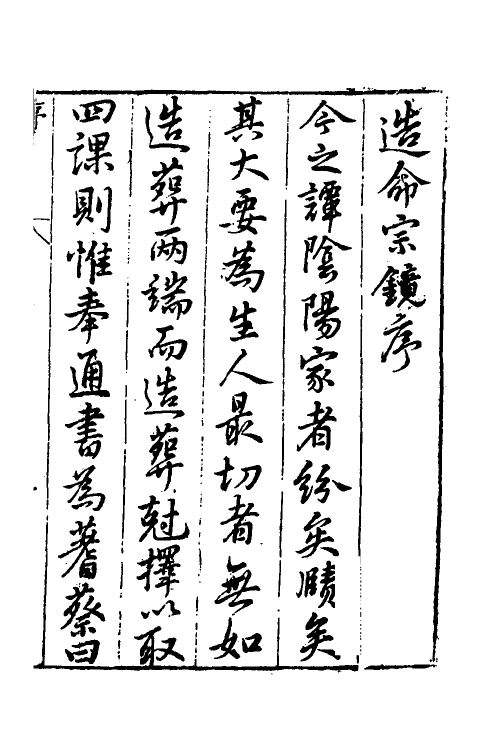 造命宗鏡序
今之譚陰陽家者紛矣賾矣
其大要為生人最切者無如
造葬两端而造葬尅擇以取
四課則惟奉通書為蓍蔡曰